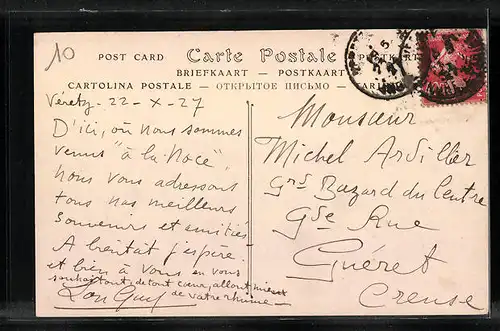 10
POST CARD Carte Postale POSTKART
BRIEFKAART - POSTKAART
CARTOLINA POSTALE - ОТКРЫТОЕ ПИСЬМО -
Véretz - 22 - X - 27
D'ici, où nous sommes
venus "à la Noce",
nous vous adressons
tous nos meilleurs
souvenirs et amitiés
A bientôt j'espère.
et bien à vous en vous
souhaitant, de tout cœur, allant mieux
de votre rhume -
Monsieur
Michel Ardillier
Grd Bazard du Centre
Gde Rue
Guéret
Creuse